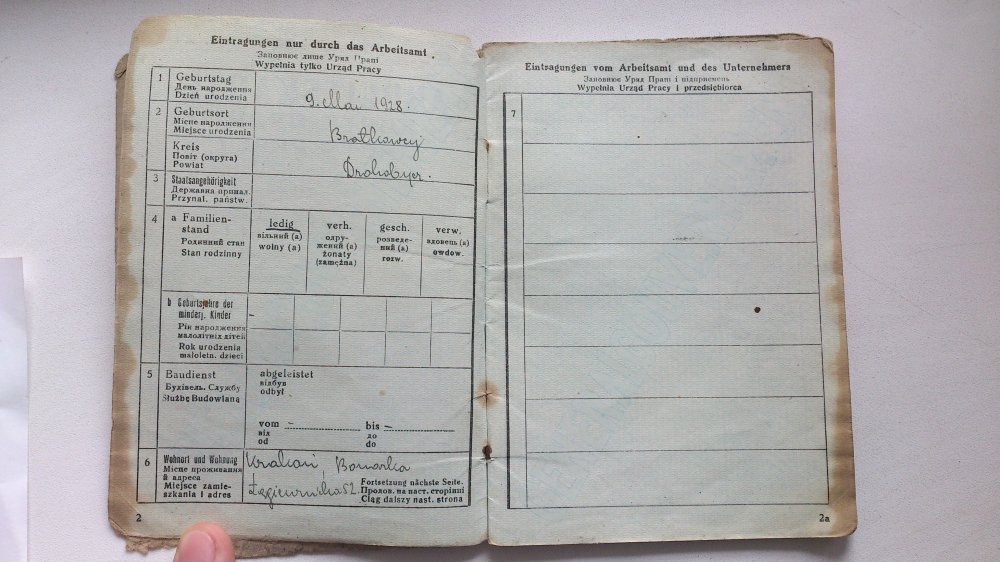 Eintragungen nur durch das Arbeitsamt
Заповнює лише Уряд Праці
Wypełnia tylko Urząd Pracy
1
Geburtstag
День народження
Dzień urodzenia
9. Mai 1928.
2
Geburtsort
Місце народження
Miejsce urodzenia
Bratkowcy
Kreis
Повіт (округа)
Powiat
Drohobycz.
3
Staatsangehörigkeit
Державна принал.
Przynal. państw.
4
a Familien-
stand
Родинний стан
Stan rodzinny
ledig
вільний (а)
wolny (a)
verh.
одру-
жений (а)
żonaty
(zamężna)
gesch.
розведе-
ний (а)
rozw.
verw.
вдовець (а)
owdow.
b Geburtsjahre der
minderj. Kinder
Рік народження
малолітніх дітей
Rok urodzenia
małoletn. dzieci
5
Baudienst
Будівель. Службу
Służbę Budowlaną
abgeleistet
відбув
odbył
vom –
від
od
bis –
до
do
6
Wohnort und Wohnung
Місце проживання
й адреса
Miejsce zamie-
szkania i adres
Krakau, Bonarka
Łagiewnicka 52.
Fortsetzung nächste Seite.
Пролов. на наст. сторінні
Ciąg dalszy nast. strona
2
Eintragungen vom Arbeitsamt und des Unternehmers
Заповнює Уряд Праці і підприємець
Wypełnia Urząd Pracy i przedsiębiorca
7
2a